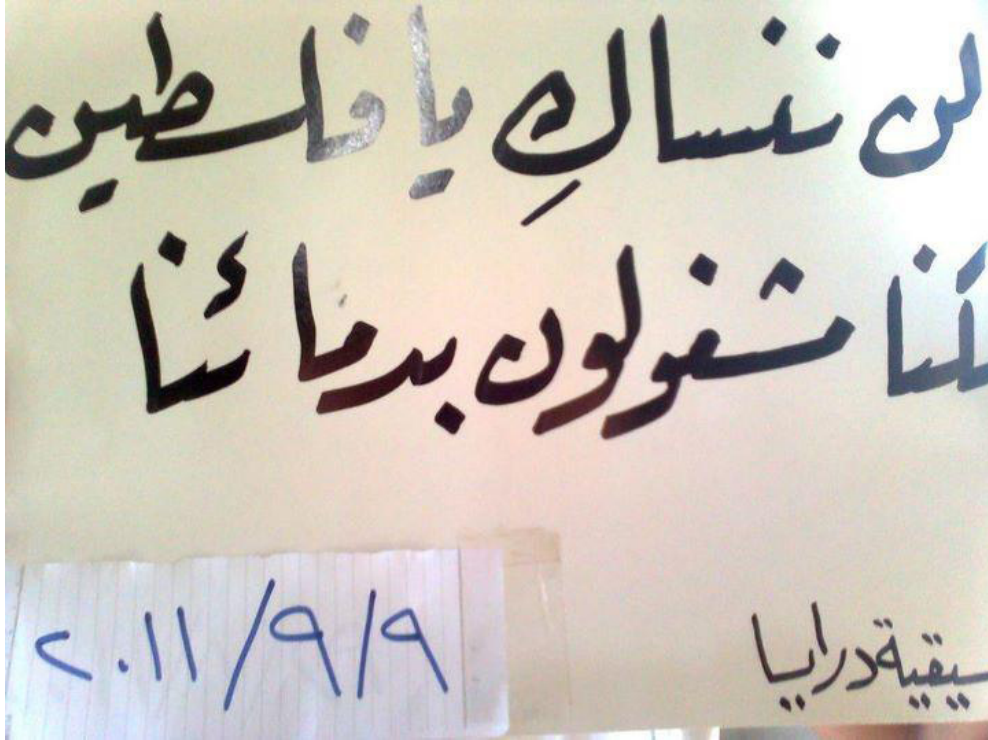 لن ننساكِ يا فلسطين
لكننا مشغولون بدمائنا
٢٠١١/٩/٩
داريا